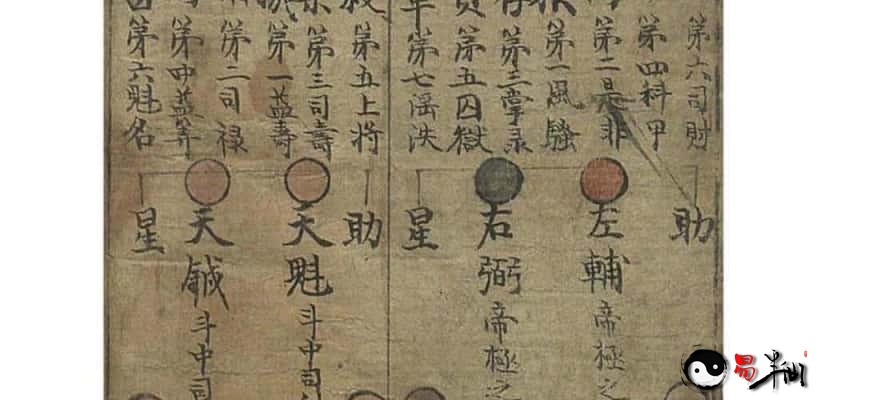 第六司財
第四科甲
第二是非
第一風騷
第三掌录
第五囚獄
第七滛泆
助
左輔帝極之
右弼帝極之
星
第五上將
第三司壽
第一益壽
第二司禄
第中益筭
第六魁名
助
天魁斗中司
天鉞斗中司
星
易半仙